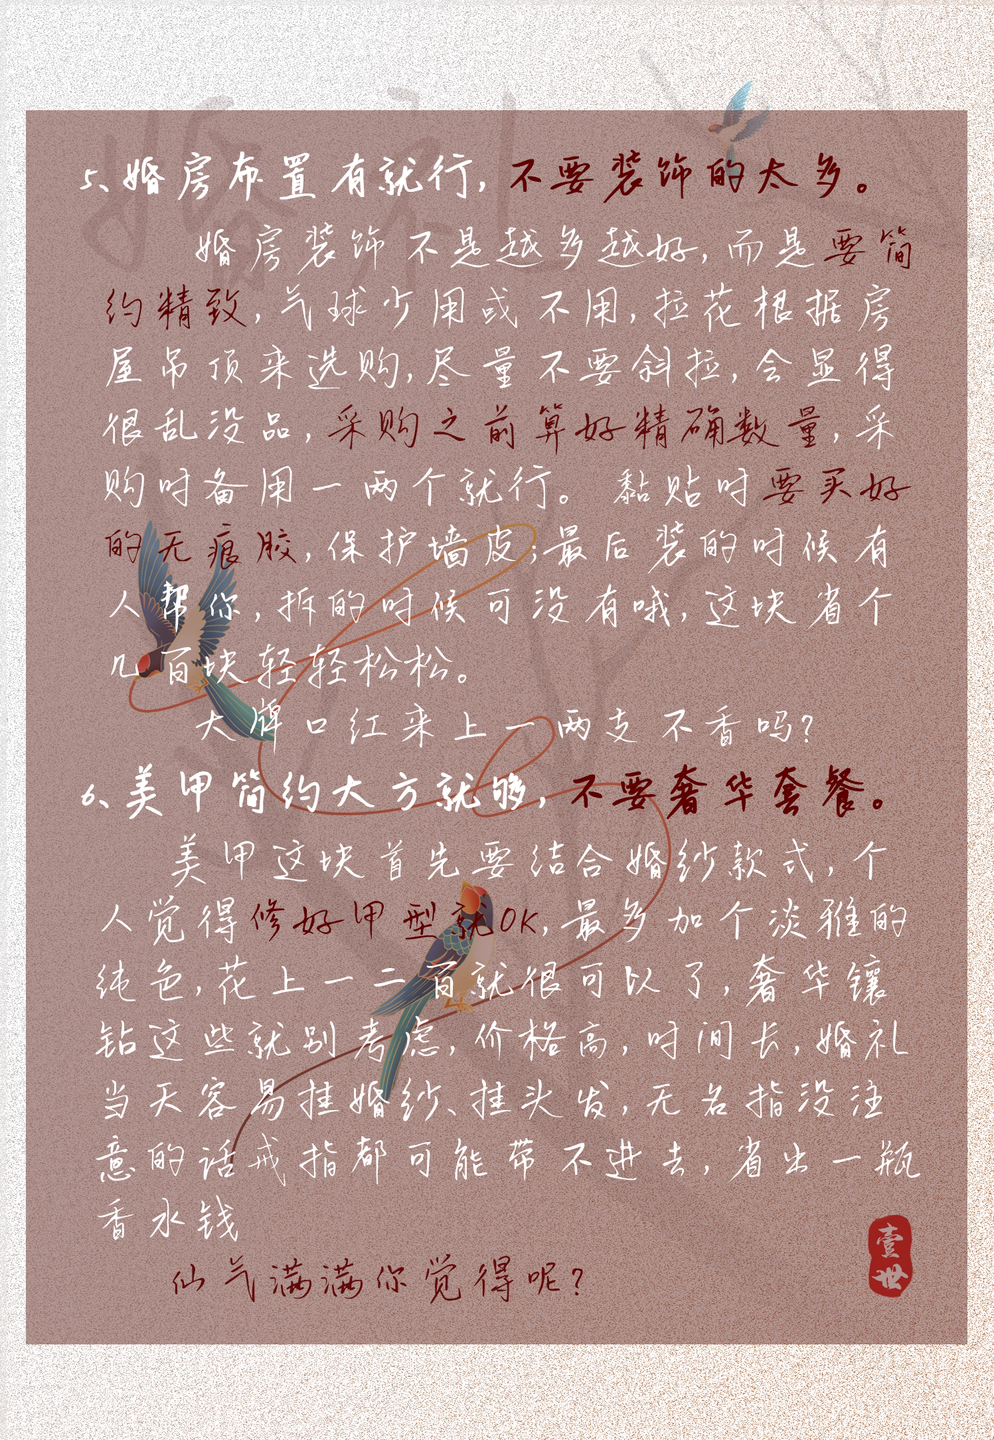 婚礼
5、婚房布置有就行，不要装饰的太多。
婚房装饰不是越多越好，而是要简
约精致，气球少用或不用，拉花根据房
屋吊顶来选购，尽量不要斜拉，会显得
很乱没品，采购之前算好精确数量，采
购时备用一两个就行。 黏贴时要买好
的无痕胶，保护墙皮；最后装的时候有
人帮你，拆的时候可没有哦，这块省个
几百块轻轻松松。
大牌口红来上一两支不香吗？
6、美甲简约大方就够，不要奢华套餐。
美甲这块首先要结合婚纱款式，个
人觉得修好甲型就OK，最多加个淡雅的
纯色，花上一二百就很可以了，奢华镶
钻这些就别考虑，价格高，时间长，婚礼
当天容易挂婚纱、挂头发，无名指没注
意的话戒指都可能带不进去，省出一瓶
香水钱
仙气满满你觉得呢？
壹世